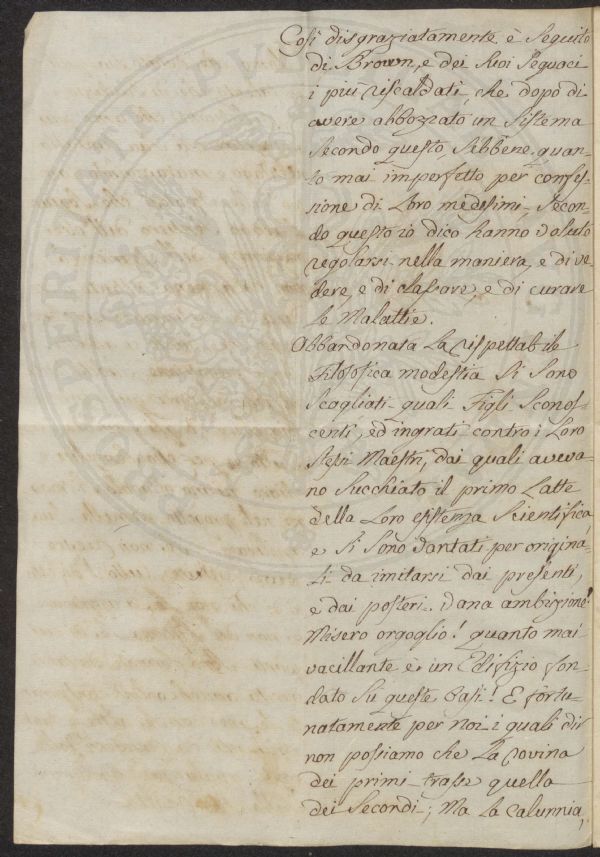 Così disgraziatamente è Seguito
di Brown, e dei Suoi Seguaci
i piu riscaldati, che dopo di
avere abbozzato un Sistema
Secondo questo Sebbene quan-
to mai imperfetto per confes-
sione di Loro medesimi, Secon-
do questo io dico hanno voluto
regolarsi nella maniera, e di ve-
dere, e di classare, e di curare
le Malattie.
Abbandonata La rispettabile
Filosofica modestia Si Sono
Scagliati quali Figli Scono-
scenti, ed ingrati contro i Loro
Stessi Maestri, dai quali aveva-
no Succhiato il primo Latte
della Loro esistenza Scientifica
e Si Sono vantati per origina-
li da imitarsi dai presenti,
e dai posteri. Vana ambizione!
Misero orgoglio! quanto mai
vacillante è un Edifizio fon-
dato Su queste basi! E fortu-
natamente per noi i quali dir
non possiamo che La rovina
dei primi trasse quella
dei Secondi; Ma La Calunnia,